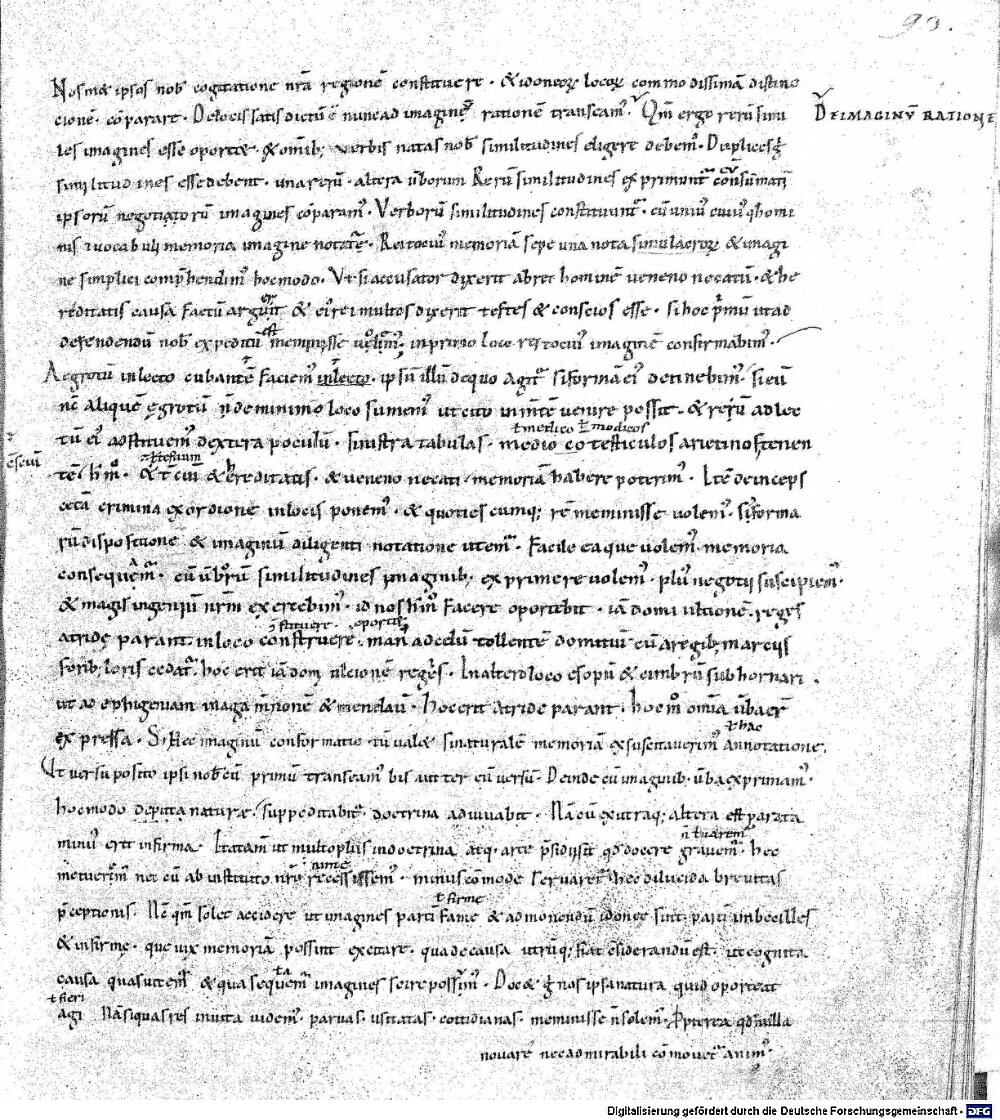 93.
Nosmet ipsos nob cogitatione nrā regionē constituere · & idoneoꝝ locoꝝ commodissimā distinc
cionē · cōparare · De locis satis dictū ē nunc ad imaginū rationē transeam᾽ · Qm̄ ergo rerū simi
DE IMAGINṼ RATIONE
les imagines esse oportet · & omīb; verbis notas nob similitudines eligere debem᾽ · Duplices ḡ
similitudines esse debent · una rerū · altera ūborum Rerū similitudines exprimunt᾽
ipsorū negotiatorū imagines cōparam᾽ · Verborū similitudines constituunt᾽ · cū uni᾽ cui᾽q; homi
nis & vocabuli memoria imagine notat᾽ · Rei toci᾽ memoriā sepe una nota simulacroꝝ & imagi
ne simplici comp̄hendim᾽ hoc modo · Vt si accusator dixerit ab reo hominē veneno necatū · & he
reditatis causa factū arguit & ei᾽ rei multos dixerit testes & conscios esse · si hoc p̄mū ut ad
defendendū nob expeditū meminisse in primo loco rei toci᾽ imaginē confirmabim᾽ ·
Aegrotū in lecto cubantē faciem᾽ in lecto · ipsū illū de quo agit᾽ si formā ei᾽ detinebim᾽ · si eū
nō aliquē egrotū n̄ de minimo loco sumem᾽ ut cito in mtē venire possit · & reum ad lec
ł medico ł modicos
tū ei᾽ adstituem᾽ dextera poculū · sinistra tabulas · medio co testiculos arietinos tenen
ł testium
tē · & hereditatis · & veneno necati memoriā habere poterim᾽ · Itē deinceps
cetā crimina ex ordione in locis ponem᾽ · & quoties cumq; rē meminisse volem᾽ · si forma
rū dispositione & imaginū diligenti notatione utem᾽ · facile ea que volem᾽ memoria
consequem᾽ · cū ūborū similitudines imaginib; exprimere volem᾽ · plus negotii suscipiem᾽ ·
& magis ingeniū nrm̄ exercebim᾽ · id nos facere oportebit · iā domi ultionē reges
atride parant in loco construere · man᾽ ad celū tollente domitiū cū a regib; marciis
lorib; loris cedat᾽ · hoc erit iā dom ulcionē reges · In altero loco esopū & cimbrū subhornari ·
ut ad ephigeniam in aga mnone & menelaū · hoc erit atride parant · hoc m᾽ omīa ūba er
expressa · S; hec imaginū conformatio tū valet si naturalē memoriā exsuscitaverim᾽ annotatione.
ł hac
Vt versu posito ipsi nob cū primū transeam᾽ bis aut ter eū versū · Deinde cū imaginib · ūba exprimam᾽ ·
hoc modo naturae suppeditabit᾽ doctrina · Nā cū ex utraq; altera est parata
min᾽ erit infirma · ut multo plus in doctrina atq · arte p̄sidii sit qd docere gravem᾽ · hec
metuerim᾽ ne cū ab instituto nrō recessissem᾽ · minus cōmode servaret᾽ hec dilucida brevitas
ł firme
p̄ceptionis · Nc̄ qm̄ solet accidere ut imagines parti fame & ad monendū idonee sint · parti inbecilles
& infirme · que vix memoriā possint excitare · qua de causa utrūq; fiat c̄siderandū est · ut cognita
causa quas vitem᾽ & qua sequem᾽ imagines scire possim᾽ · Docet ḡ nos ipsa natura quid oporteat
ł fieri
agi Nā si quas res in vita videm᾽ · parvas · usitatas · cottidianas · meminisse n̄ solem᾽ · ꝓpterea qd nulla
novare nec admirabili cōmovet᾽ anim᾽ ·
Digitalisierung gefördert durch die Deutsche Forschungsgemeinschaft - DFG